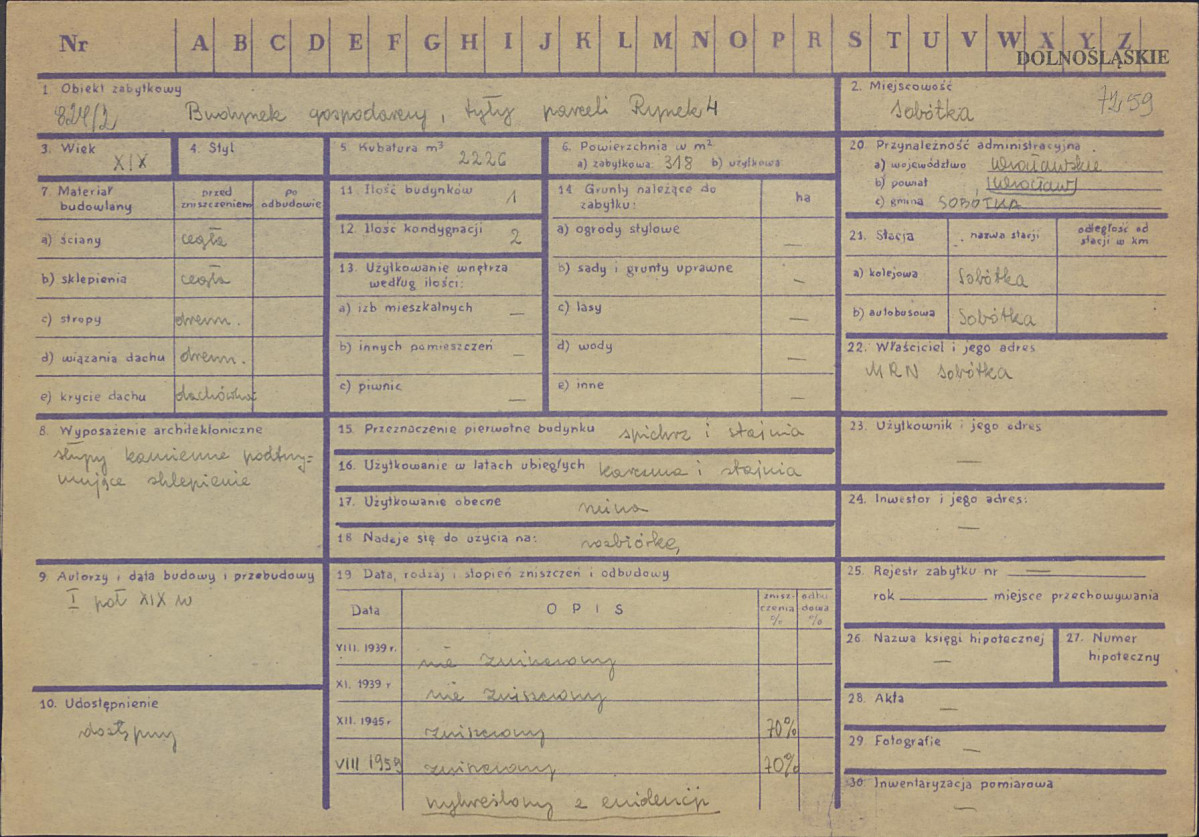 Nr A B C D E F G H I J K L M N O P R S T U V W X Y Z
DOLNOŚLĄSKIE
1. Obiekt zabytkowy
824/2 Budynek gospodarczy, tyły parceli Rynek 4
2. Miejscowość
Sobótka 7159
3. Wiek
XIX
4. Styl
5. Kubatura m³
2226
6. Powierzchnia w m²
a) zabytkowa: 318 b) użytkowa:
7. Materiał budowlany
przed zniszczeniem
po odbudowie
a) ściany cegła
b) sklepienia cegła
c) stropy drewn.
d) wiązania dachu drewn.
e) krycie dachu dachówka
8. Wyposażenie architektoniczne
słupy kamienne podtrzy=
mujące sklepienie
9. Autorzy i data budowy i przebudowy
I poł XIX w
10. Udostępnienie
dostępny
11. Ilość budynków 1
12. Ilość kondygnacji 2
13. Użytkowanie wnętrza
według ilości:
a) izb mieszkalnych —
b) innych pomieszczeń —
c) piwnic —
14. Grunty należące do
zabytku: ha
a) ogrody stylowe —
b) sady i grunty uprawne —
c) lasy —
d) wody —
e) inne —
15. Przeznaczenie pierwotne budynku spichrz i stajnia
16. Użytkowanie w latach ubiegłych karczma i stajnia
17. Użytkowanie obecne ruina
18. Nadaje się do użycia na: rozbiórkę
19. Data, rodzaj i stopień zniszczeń i odbudowy
Data OPIS zniszczenia % odbudowa %
VIII. 1939 r. nie zniszczony
XI. 1939 r nie zniszczony
XII. 1945 r zniszczony 70%
VIII 1959 zniszczony 70%
wykreślony z ewidencji
20. Przynależność administracyjna
a) województwo wrocławskie
b) powiat Wrocław
c) gmina SOBÓTKA
21. Stacja nazwa stacji odległość od stacji w km
a) kolejowa Sobótka
b) autobusowa Sobótka
22. Właściciel i jego adres
MRN Sobótka
23. Użytkownik i jego adres
—
24. Inwestor i jego adres:
—
25. Rejestr zabytku nr —
rok miejsce przechowywania
26. Nazwa księgi hipotecznej
—
27. Numer
hipoteczny
28. Akta
—
29. Fotografie —
30. Inwentaryzacja pomiarowa
—